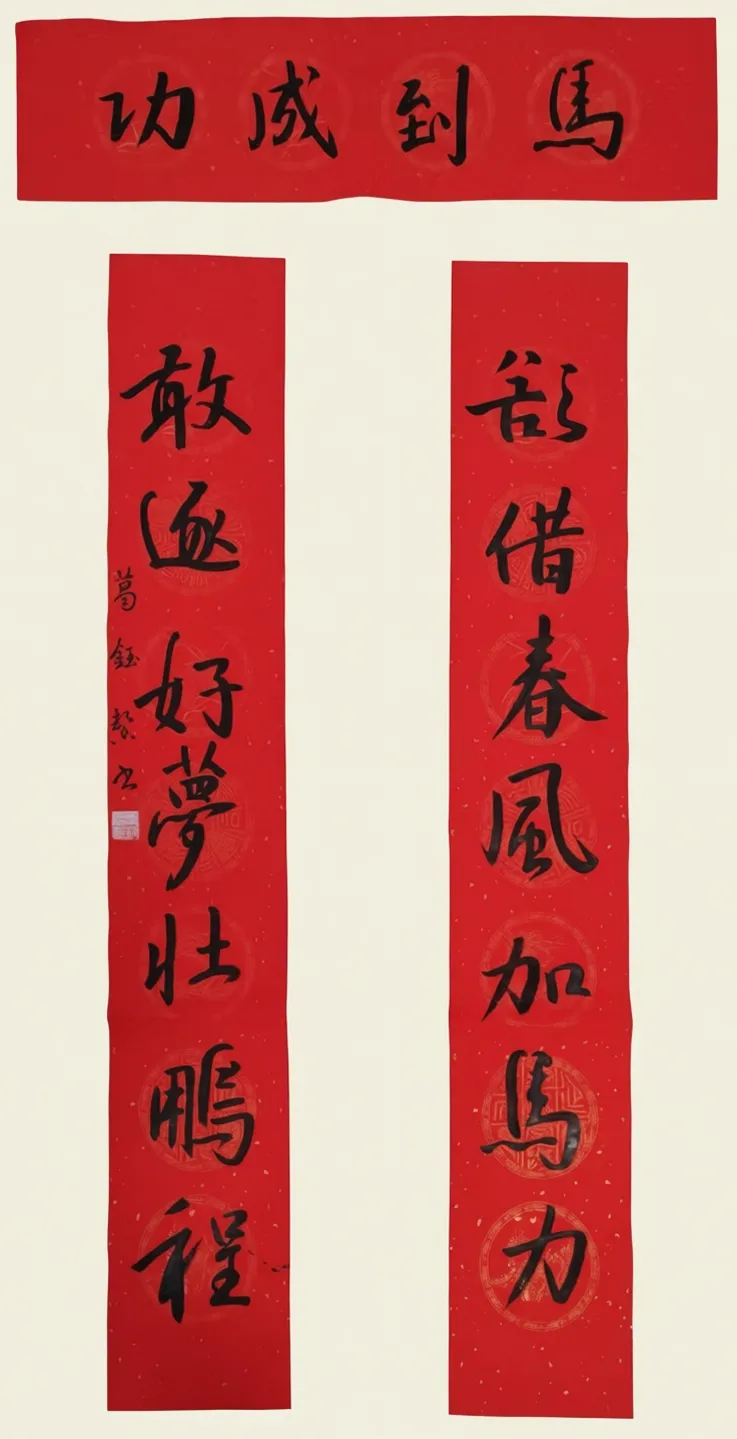 馬到成功
欲借春風加馬力
敢逐好夢壮鵬程
葛鈺书